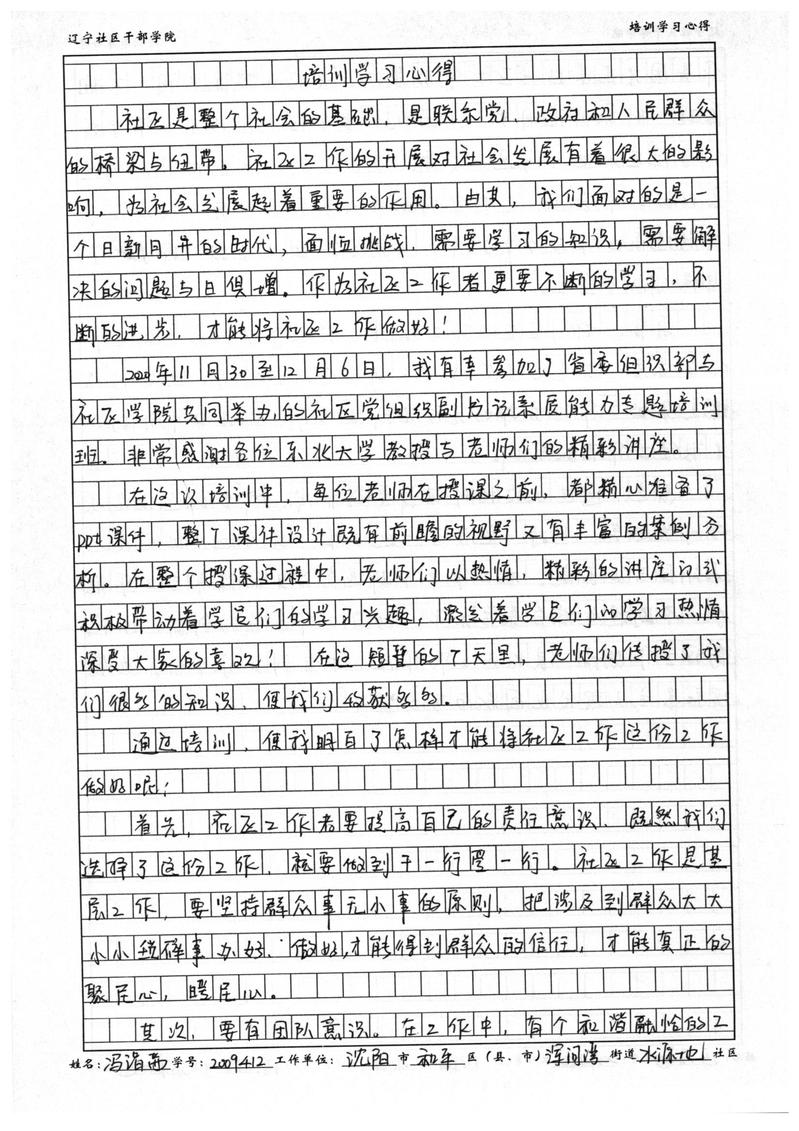 辽宁社区干部学院 培训学习心得
培训学习心得
社区是整个社会的基础,是联系党、政府和人民群众
的桥梁与纽带。社区工作的开展对社会发展有着很大的影
响,为社会发展起着重要的作用。由其,我们面对的是一
个日新月异的时代,面临挑战,需要学习的知识,需要解
决的问题与日俱增。作为社区工作者更要不断的学习,不
断的进步,才能将社区工作做好!
2020年11月30至12月6日,我有幸参加了省委组织部与
社区学院共同举办的社区党组织副书记素质能力专题培训
班。非常感谢各位东北大学教授与老师们的精彩讲座。
在这次培训中,每位老师在授课之前,都精心准备了
ppt课件,整个课件设计既有前瞻的视野又有丰富的案例分
析。在整个授课过程中,老师们以热情,精彩的讲座方式
积极带动着学员们的学习兴趣,激发着学员们的学习热情
深受大家的喜欢!在这短暂的7天里,老师们传授了我
们很多的知识,使我们收获多多。
通过培训,使我明白了怎样才能将社区工作这份工作
做好呢!
首先,社区工作者要提高自己的责任意识,既然我们
选择了这份工作,就要做到干一行爱一行。社区工作是基
层工作,要坚持群众事无小事的原则,把涉及到群众大大
小小琐碎事办好、做好,才能得到群众的信任,才能真正的
聚民心,暖民心。
其次,要有团队意识。在工作中,有个和谐融恰的工
姓名:冯 学号:2009412 工作单位:沈阳市 和平 区(县、市)浑河湾 街道 水源地 社区